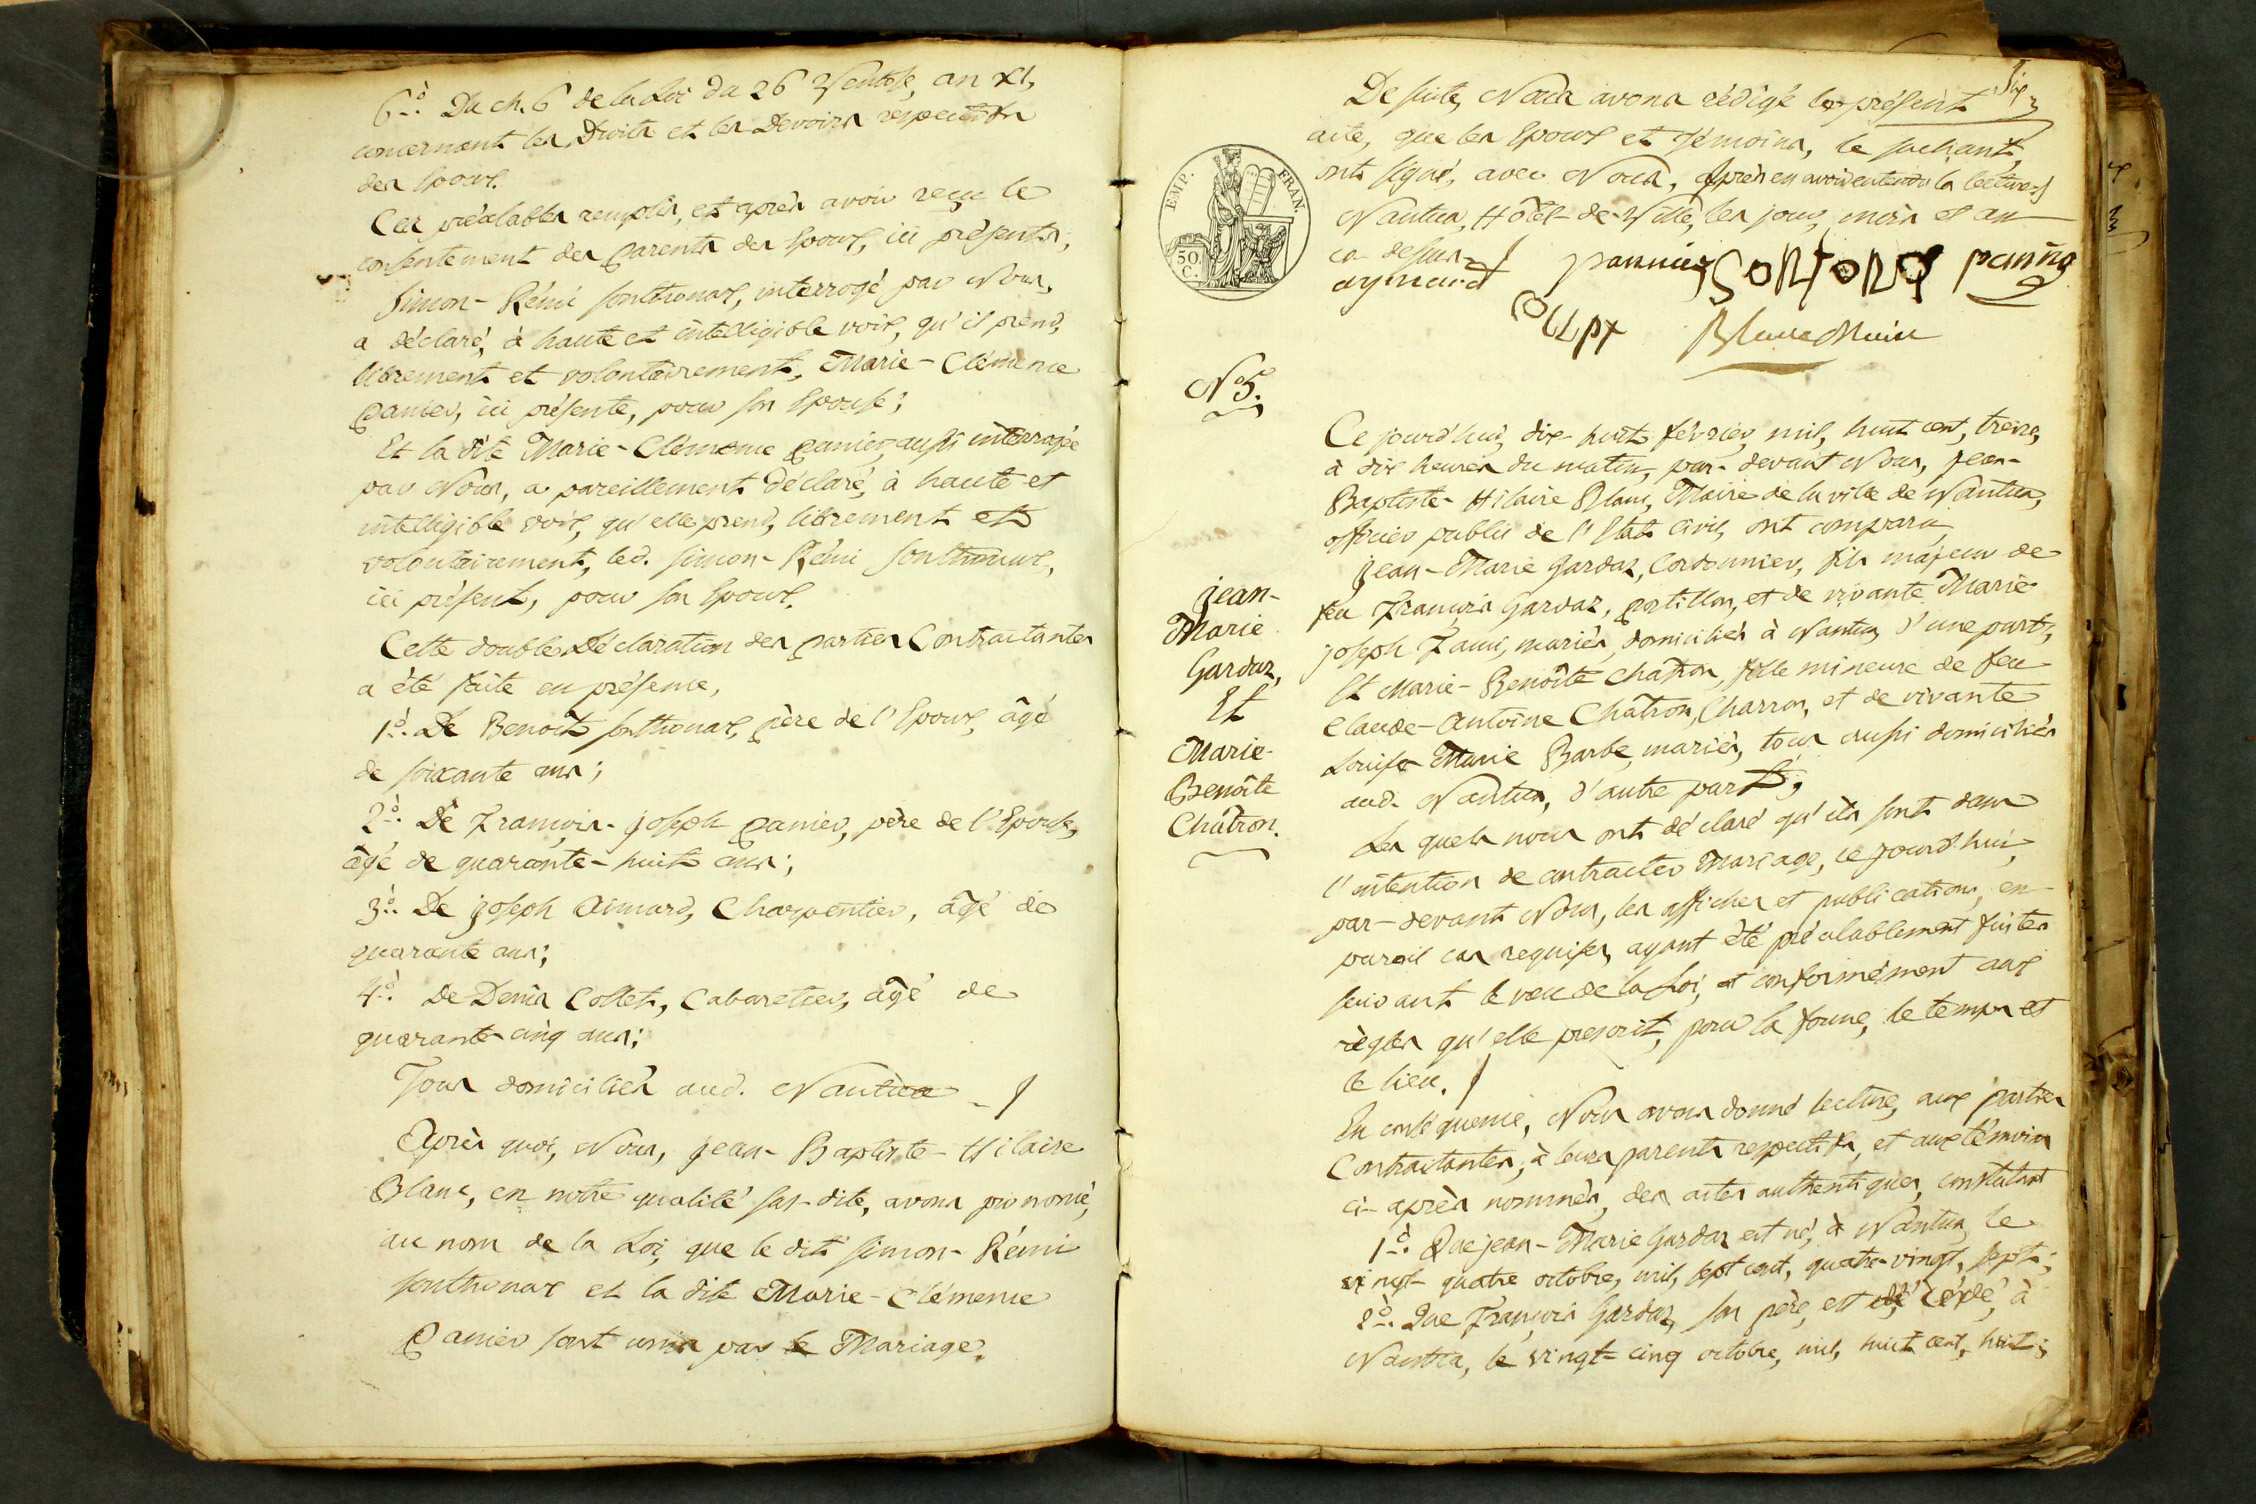 6.° Du ch. 6 de la Loi du 26 Ventôse, an XI,
concernant les Droits et les Devoirs respectifs
des Epoux.
Ces préalables remplis, et après avoir reçu le
consentement des parents des Epoux, ici présents;
Simon-Rémi Sonthonax, interrogé par Nous,
a déclaré, à haute et intelligible voix, qu'il prend,
librement et volontairement, Marie-Clémence
Panier, ici présente, pour son Epouse;
Et la dite Marie-Clémence Panier, aussi interrogée
par Nous, a pareillement déclaré, à haute et
intelligible voix, qu'elle prend, librement et
volontairement, led. Simon-Rémi Sonthonax,
ici présent, pour son Epoux.
Cette double Déclaration des parties Contractantes
a été faite en présence,
1.° De Benoît Sonthonax, père de l'Epoux, âgé
de soixante ans;
2.° De François-Joseph Panier, père de l'Epouse,
âgé de quarante-huit ans;
3.° De Joseph Aimard, Charpentier, âgé de
quarante ans;
4.° De Denis Collet, Cabaretier, âgé de
quarante-cinq ans;
Tous domiciliés aud. Nantua
Après quoi, Nous, Jean-Baptiste-Hilaire
Blanc, en notre qualité sus-dite, avons prononcé,
au nom de la Loi, que le dit Simon-Rémi
Sonthonax et la dite Marie-Clémence
Panier sont unis par le Mariage.
Six
De suite, Nous avons rédigé le présent
acte, que les Epoux et témoins, le sachant,
ont signé, avec Nous, après en avoir entendu la lecture
Nantua, Hôtel-de-Ville, les jour, mois et an
ca dessus
EMP. FRAN.
50 C.
aymard pannier SONTONAX panier
COLLET Blanc Maire
N.° 5.
Jean-
Marie
Gardaz,
Et
Marie-
Benoîte
Châtron.
Ce jourd'hui, dix-huit février, mil, huit cent, treize,
à dix heures du matin, par-devant Nous, Jean-
Baptiste-Hilaire Blanc, Maire de la ville de Nantua,
officier public de l'Etat Civil, ont comparu
Jean-Marie Gardaz, Cordonnier, fils majeur de
feu François Gardaz, Postillon, et de vivante Marie
Joseph Zami, mariés, domiciliés à Nantua, d'une part,
Et Marie-Benoîte Châtron, fille mineure de feu
Claude-Antoine Châtron, Charron, et de vivante
Louise Marie Barbe, mariés, tous aussi domiciliés
aud. Nantua, d'autre part;
Les quels nous ont déclaré qu'ils sont dans
l'intention de contracter Mariage, ce jourd'hui,
par-devant Nous, les affiches et publications, en
pareil cas requises, ayant été préalablement faites
suivant le vœu de la Loi, et conformément aux
règles qu'elle prescrit, pour la forme, le temps et
le lieu.
En conséquence, Nous avons donné lecture, aux parties
Contractantes, à leurs parents respectifs, et aux témoins
ci-après nommés, des actes authentiques, constatant
1.° Que Jean-Marie Gardaz est né, à Nantua, le
vingt-quatre octobre, mil, sept cent, quatre-vingt, sept;
2.° Que François Gardaz, son père, est décédé, à
Nantua, le vingt-cinq octobre, mil, huit cent, huit;